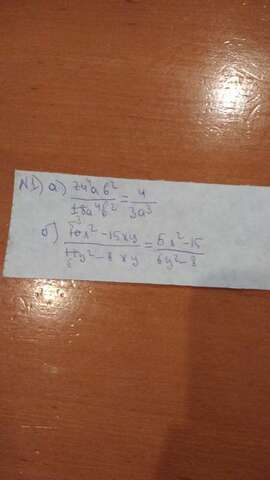 N1) а) 24ab² / 18a⁴b² = 4 / 3a³
б) 10x² - 15xy / 12y² - 8xy = 5x² - 15 / 6y² - 8